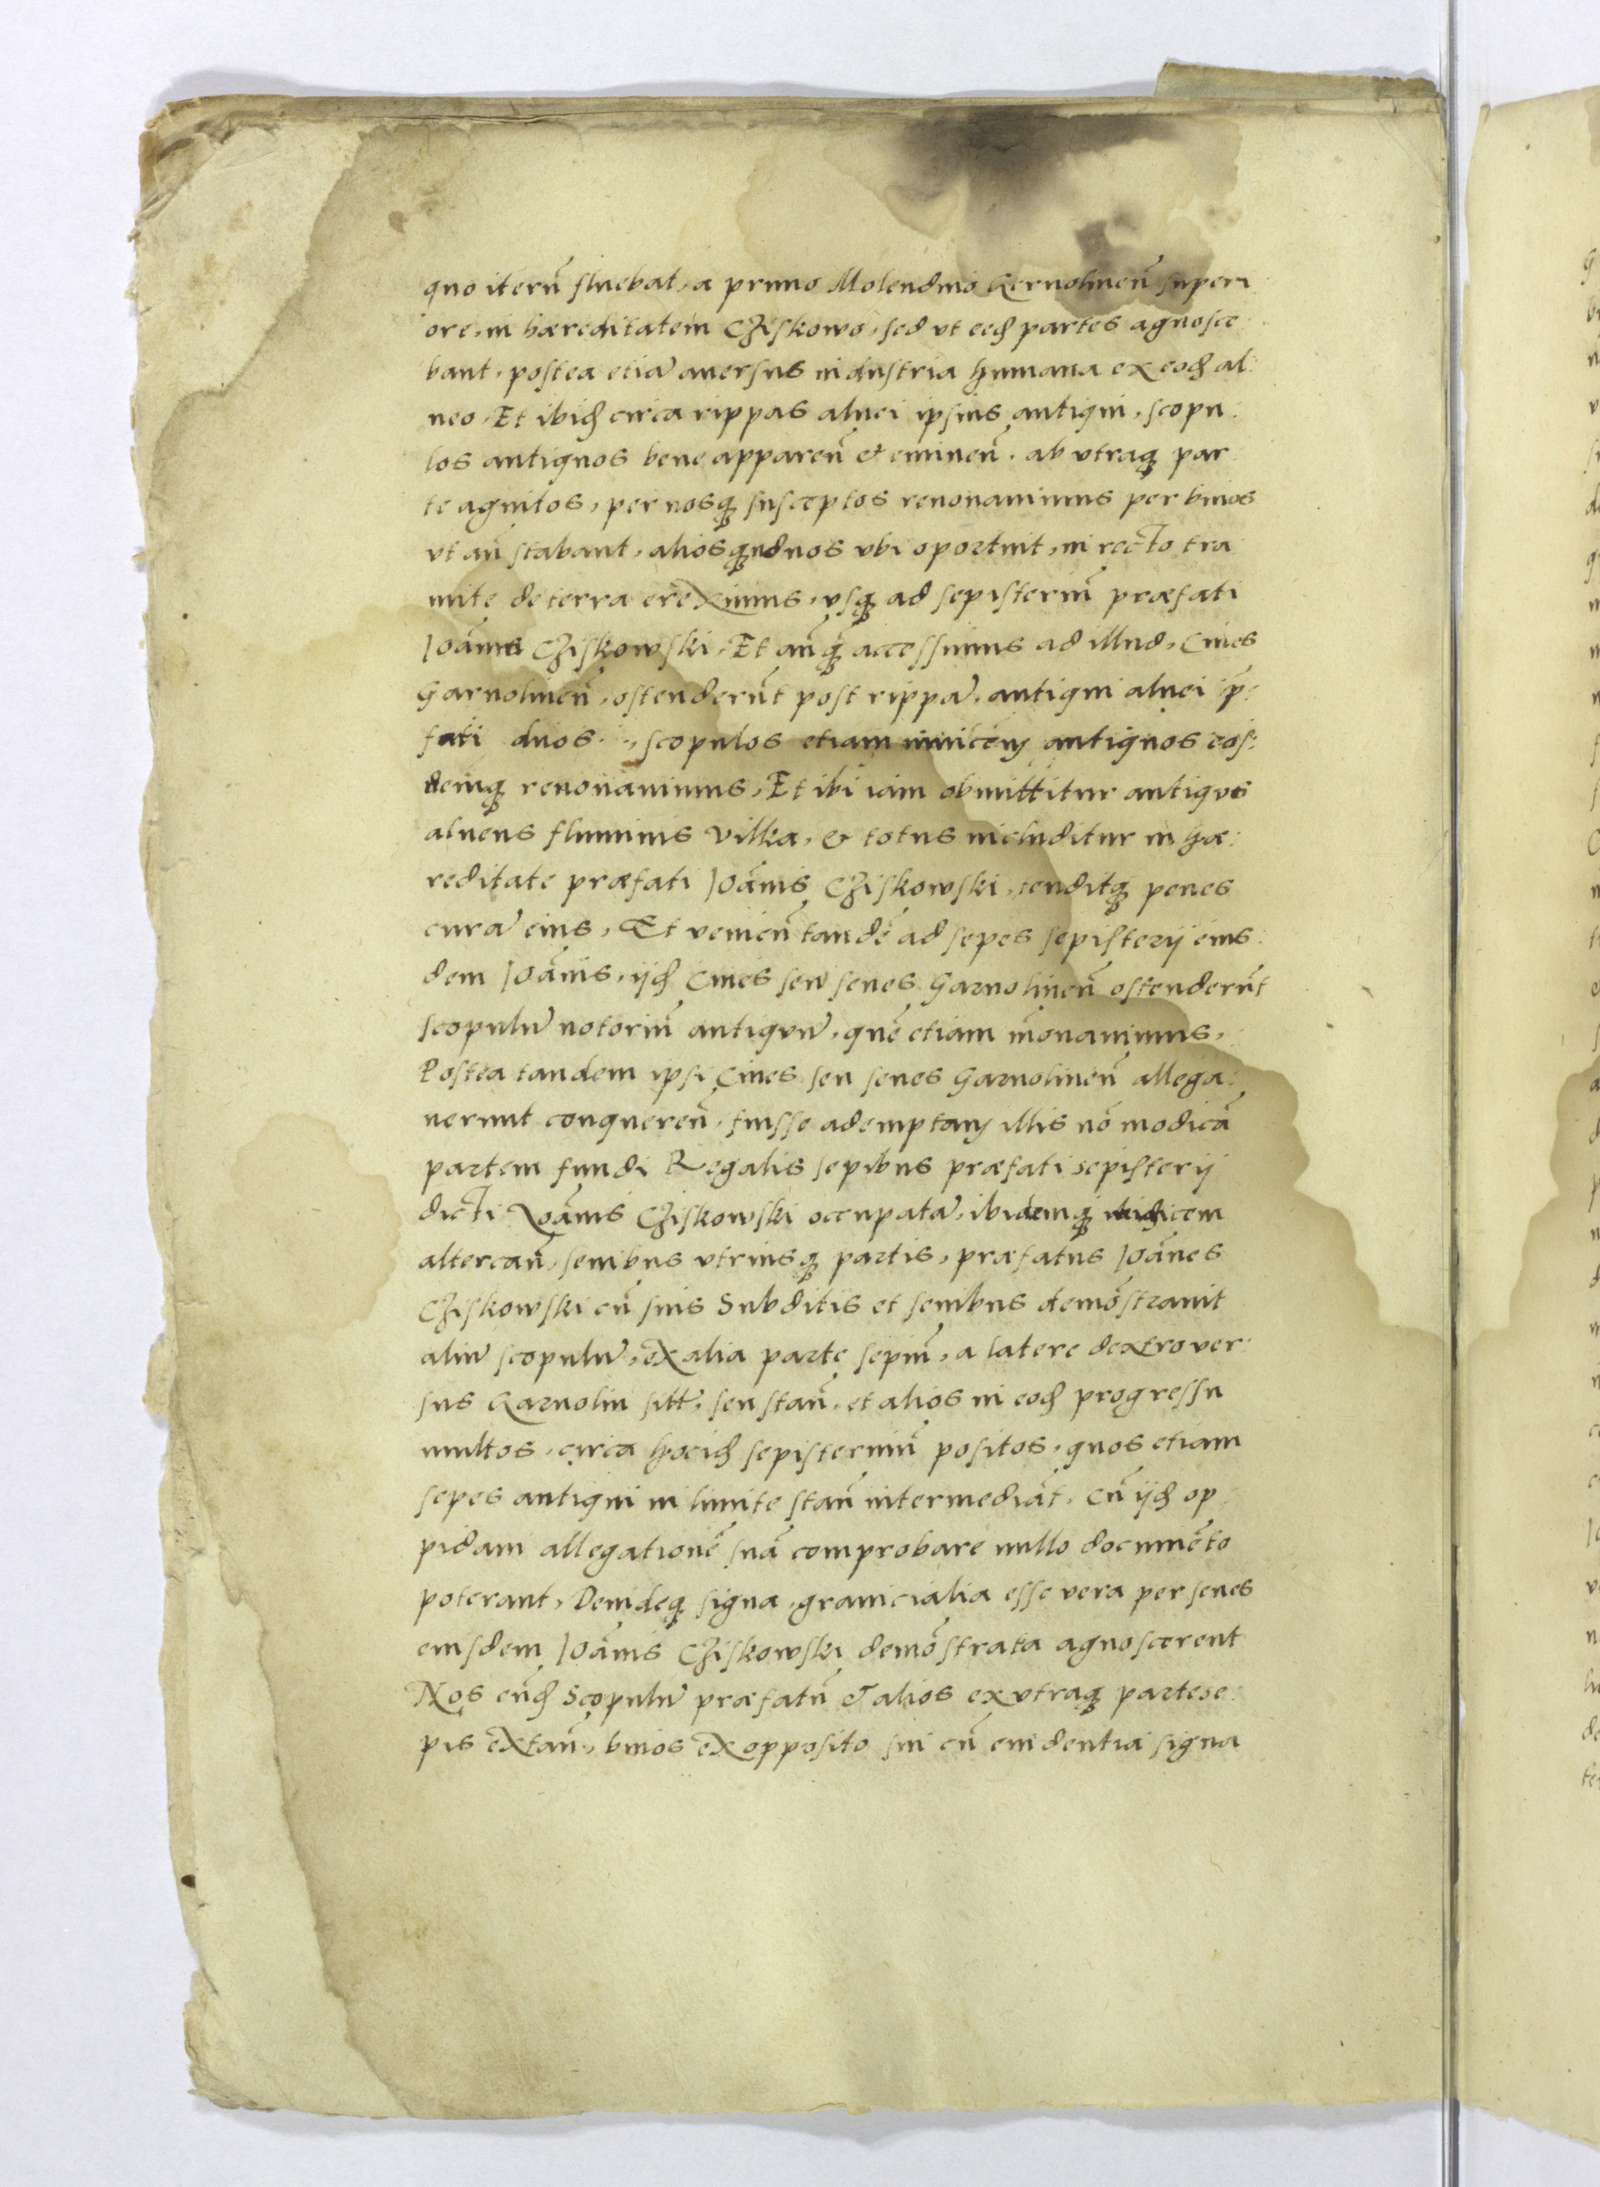 quo iterũ fluebat, a primo Molendino Gernolineñ superi
ore, in hæreditatem Cziskowo, sed ut eedꝫ partes agnosce
bant, postea etiã auersus industria humana ex eodꝫ al:
ueo, Et ibidꝫ circa rippas aluei ipsius antiqui, scopu:
los antiquos bene appareñ et emineñ. ab utraqꝫ par
te agnitos, per nosqꝫ susceptos renouauimus per binos
ut añ stabant, aliosqꝫ duos ubi oportuit, in recto tra
mite de terra ereximus, usqꝫ ad sepisteriũ præfati
Ioãnis Cziskowski, Et añqꝫ accessimus ad illud, Ciues
Garnolineñ, ostenderũt post rippã, antiqui aluei p̃:
fati duos, scopulos etiam inuicem antiquos eos:
demqꝫ renouauimus, Et ibi iam obmittitur antiquus
alueus fluminis Vilka, & totus includitur in hæ:
reditate præfati Ioãnis Cziskowski, tenditqꝫ penes
curã eius, Et venieñ tandẽ ad sepes sepisterij eius:
dem Ioãnis, ijdꝫ Ciues seu senes Garnolineñ ostenderũt
scopulũ notoriũ antiquũ, quẽ etiam ĩnouauimus,
Postea tandem ipsi Ciues seu senes Garnolineñ allega:
uerunt conquereñ, fuisse ademptam illis nõ modicã
partem fundi Regalis sepibus præfati sepisterij
dicti Ioãnis Cziskowski occupatã, ibidemqꝫ inuicem
altercañ, senibus utriusqꝫ partis, præfatus Ioãnes
Cziskowski cũ suis Subditis et senibus demõstrauit
aliũ scopulũ, ex alia parte sepiũ, a latere dextro ver:
sus Garnolin sitt̃, seu stañ, et alios in eodꝫ progressu
multos, circa hocidꝫ sepisteriũ positos, quos etiam
sepes antiqui in limite stañ intermediãt, Cũ ijdꝫ op:
pidani allegationẽ suã comprobare nullo documẽto
poterant, Denideqꝫ signa, granicialia esse vera per senes
eiusdem Ioãnis Cziskowski demõstrata agnoscerent
Nos eũdꝫ Scopulũ præfatũ & alios ex utraqꝫ parte se:
pis extañ, binos ex opposito sui cũ euidentia signa